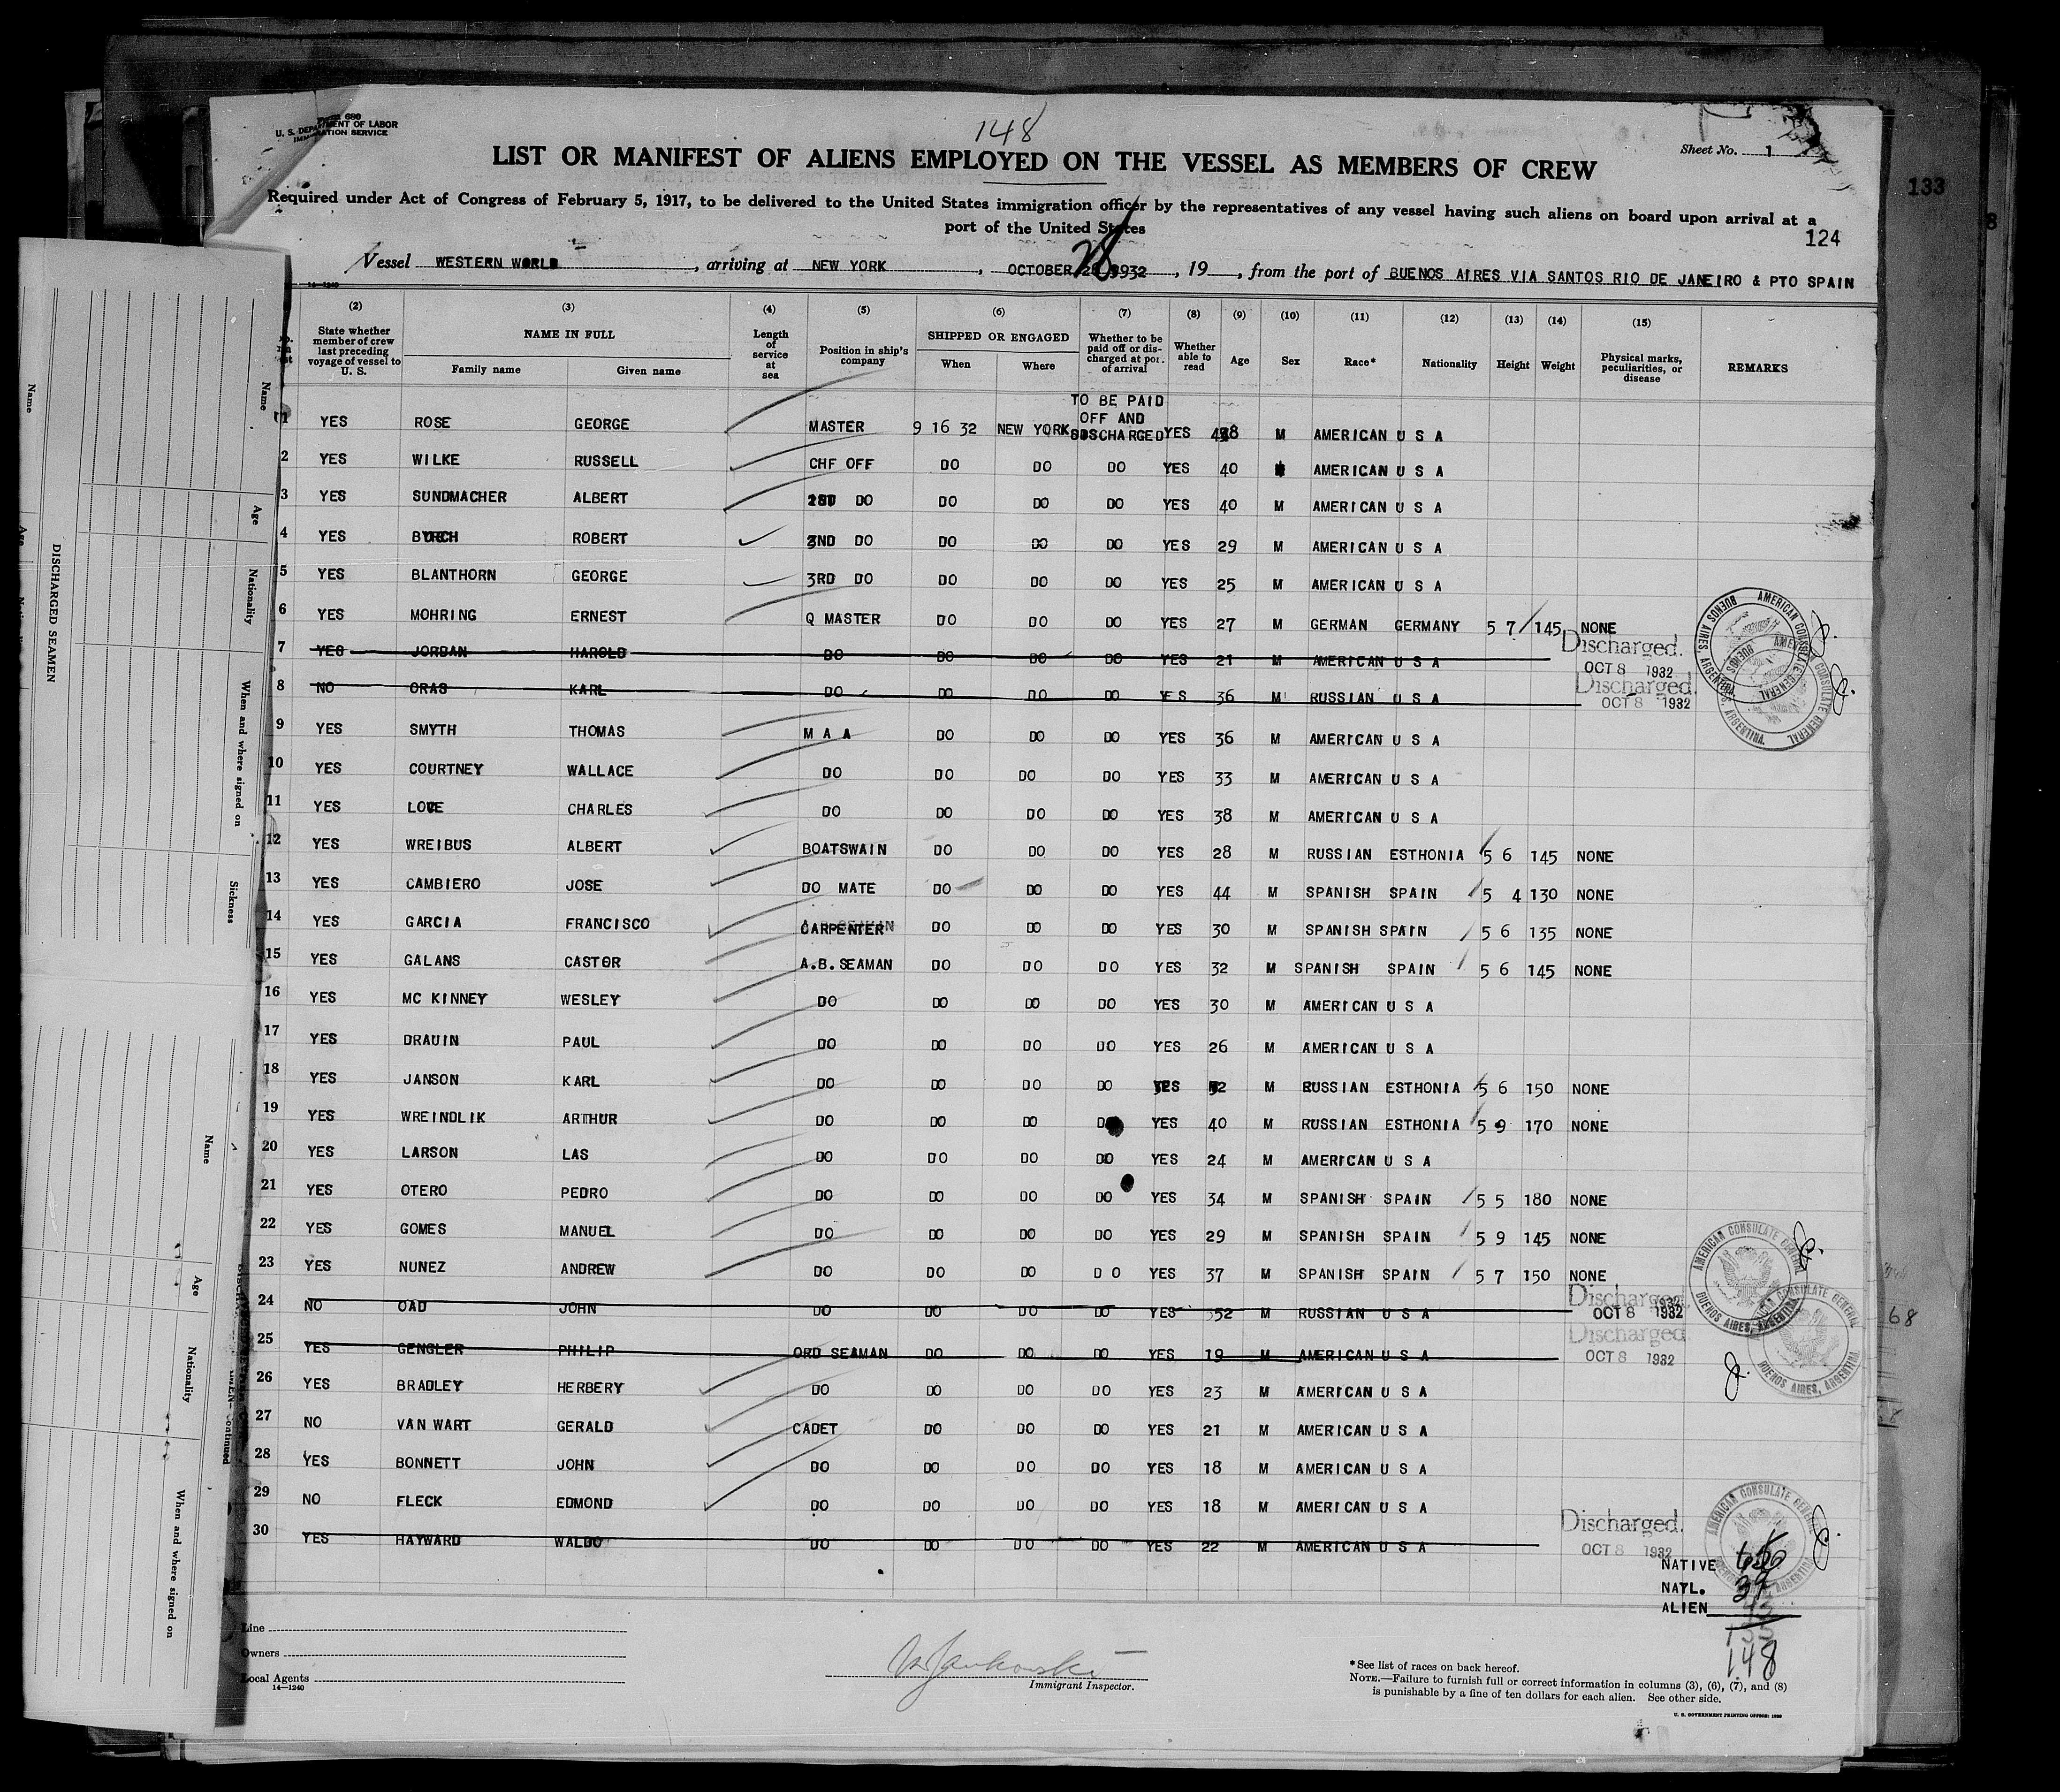 Form 680
U. S. DEPARTMENT OF LABOR
IMMIGRATION SERVICE
148
Sheet No. 1
LIST OR MANIFEST OF ALIENS EMPLOYED ON THE VESSEL AS MEMBERS OF CREW
Required under Act of Congress of February 5, 1917, to be delivered to the United States immigration officer by the representatives of any vessel having such aliens on board upon arrival at a
port of the United States
133
124
Vessel WESTERN WORLD, arriving at NEW YORK, OCTOBER 28 1932, 19, from the port of BUENOS AIRES VIA SANTOS RIO DE JANEIRO & PTO SPAIN
14—1240
(2) (3) (4) (5) (6) (7) (8) (9) (10) (11) (12) (13) (14) (15)
State whether member of crew last preceding voyage of vessel to U. S. NAME IN FULL Family name Given name Length of service at sea Position in ship's company SHIPPED OR ENGAGED When Where Whether to be paid off or discharged at port of arrival Whether able to read Age Sex Race* Nationality Height Weight Physical marks, peculiarities, or disease REMARKS
TO BE PAID
OFF AND
1 YES ROSE GEORGE MASTER 9 16 32 NEW YORK DISCHARGED YES 48 M AMERICAN U S A
2 YES WILKE RUSSELL CHF OFF DO DO DO YES 40 M AMERICAN U S A
3 YES SUNDMACHER ALBERT 1ST DO DO DO DO YES 40 M AMERICAN U S A
4 YES BURCH ROBERT 2ND DO DO DO DO YES 29 M AMERICAN U S A
5 YES BLANTHORN GEORGE 3RD DO DO DO DO YES 25 M AMERICAN U S A
6 YES MOHRING ERNEST Q MASTER DO DO DO YES 27 M GERMAN GERMANY 5 7 145 NONE
7 YES JORDAN HAROLD DO DO DO DO YES 21 M AMERICAN U S A Discharged. OCT 8 1932
8 NO ORAS KARL DO DO DO DO YES 36 M RUSSIAN U S A Discharged. OCT 8 1932
AMERICAN CONSULATE GENERAL BUENOS AIRES, ARGENTINA
9 YES SMYTH THOMAS M A A DO DO DO YES 36 M AMERICAN U S A
10 YES COURTNEY WALLACE DO DO DO DO YES 33 M AMERICAN U S A
11 YES LOVE CHARLES DO DO DO DO YES 38 M AMERICAN U S A
12 YES WREIBUS ALBERT BOATSWAIN DO DO DO YES 28 M RUSSIAN ESTHONIA 5 6 145 NONE
13 YES CAMBIERO JOSE DO MATE DO DO DO YES 44 M SPANISH SPAIN 5 4 130 NONE
14 YES GARCIA FRANCISCO CARPENTER DO DO DO YES 30 M SPANISH SPAIN 5 6 135 NONE
15 YES GALANS CASTOR A.B.SEAMAN DO DO DO YES 32 M SPANISH SPAIN 5 6 145 NONE
16 YES MC KINNEY WESLEY DO DO DO DO YES 30 M AMERICAN U S A
17 YES DRAUIN PAUL DO DO DO DO YES 26 M AMERICAN U S A
18 YES JANSON KARL DO DO DO DO YES M RUSSIAN ESTHONIA 5 6 150 NONE
19 YES WREINDLIK ARTHUR DO DO DO DO YES 40 M RUSSIAN ESTHONIA 5 9 170 NONE
20 YES LARSON LAS DO DO DO DO YES 24 M AMERICAN U S A
21 YES OTERO PEDRO DO DO DO DO YES 34 M SPANISH SPAIN 5 5 180 NONE
22 YES GOMES MANUEL DO DO DO DO YES 29 M SPANISH SPAIN 5 9 145 NONE
23 YES NUNEZ ANDREW DO DO DO DO YES 37 M SPANISH SPAIN 5 7 150 NONE
24 NO OAD JOHN DO DO DO DO YES 352 M RUSSIAN U S A Discharged. OCT 8 1932
25 YES GENGLER PHILIP ORD SEAMAN DO DO DO YES 19 M AMERICAN U S A Discharged. OCT 8 1932
AMERICAN CONSULATE GENERAL BUENOS AIRES, ARGENTINA
68
26 YES BRADLEY HERBERY DO DO DO DO YES 23 M AMERICAN U S A
27 NO VAN WART GERALD CADET DO DO DO YES 21 M AMERICAN U S A
28 YES BONNETT JOHN DO DO DO DO YES 18 M AMERICAN U S A
29 NO FLECK EDMOND DO DO DO DO YES 18 M AMERICAN U S A
30 YES HAYWARD WALDO DO DO DO DO YES 22 M AMERICAN U S A Discharged. OCT 8 1932
AMERICAN CONSULATE GENERAL
NATIVE
NATL.
ALIEN
148
Line
Owners
Local Agents
14—1240
Immigrant Inspector.
*See list of races on back hereof.
NOTE.—Failure to furnish full or correct information in columns (3), (6), (7), and (8)
is punishable by a fine of ten dollars for each alien. See other side.
U. S. GOVERNMENT PRINTING OFFICE: 1930
DISCHARGED SEAMEN
Name
Age
Nationality
When and where signed on
Sickness
Name
Age
Nationality
When and where signed on